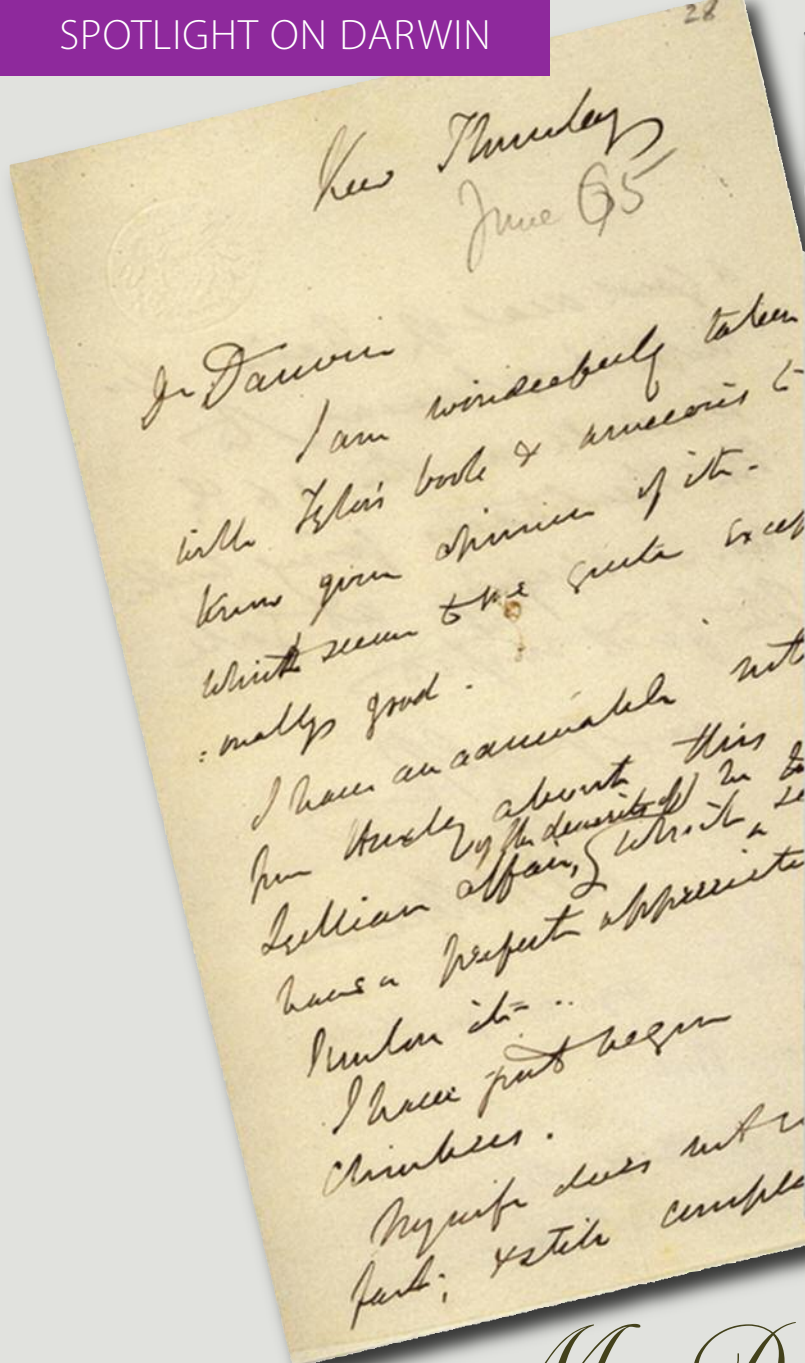 SPOTLIGHT ON DARWIN
28
Kew Thursday
June 65
Dr Darwin
I am wonderfully taken
with Tylor's book & am curious to
know your opinion of it.-
which seems to me quite excep
:onally good.
I have an admirable not
from Huxley about this
of the demerits of he
Lyellian affair, which se
have a perfect appreciati
it
I have just begun
Climbers.
My wife does not
fast; & still compla